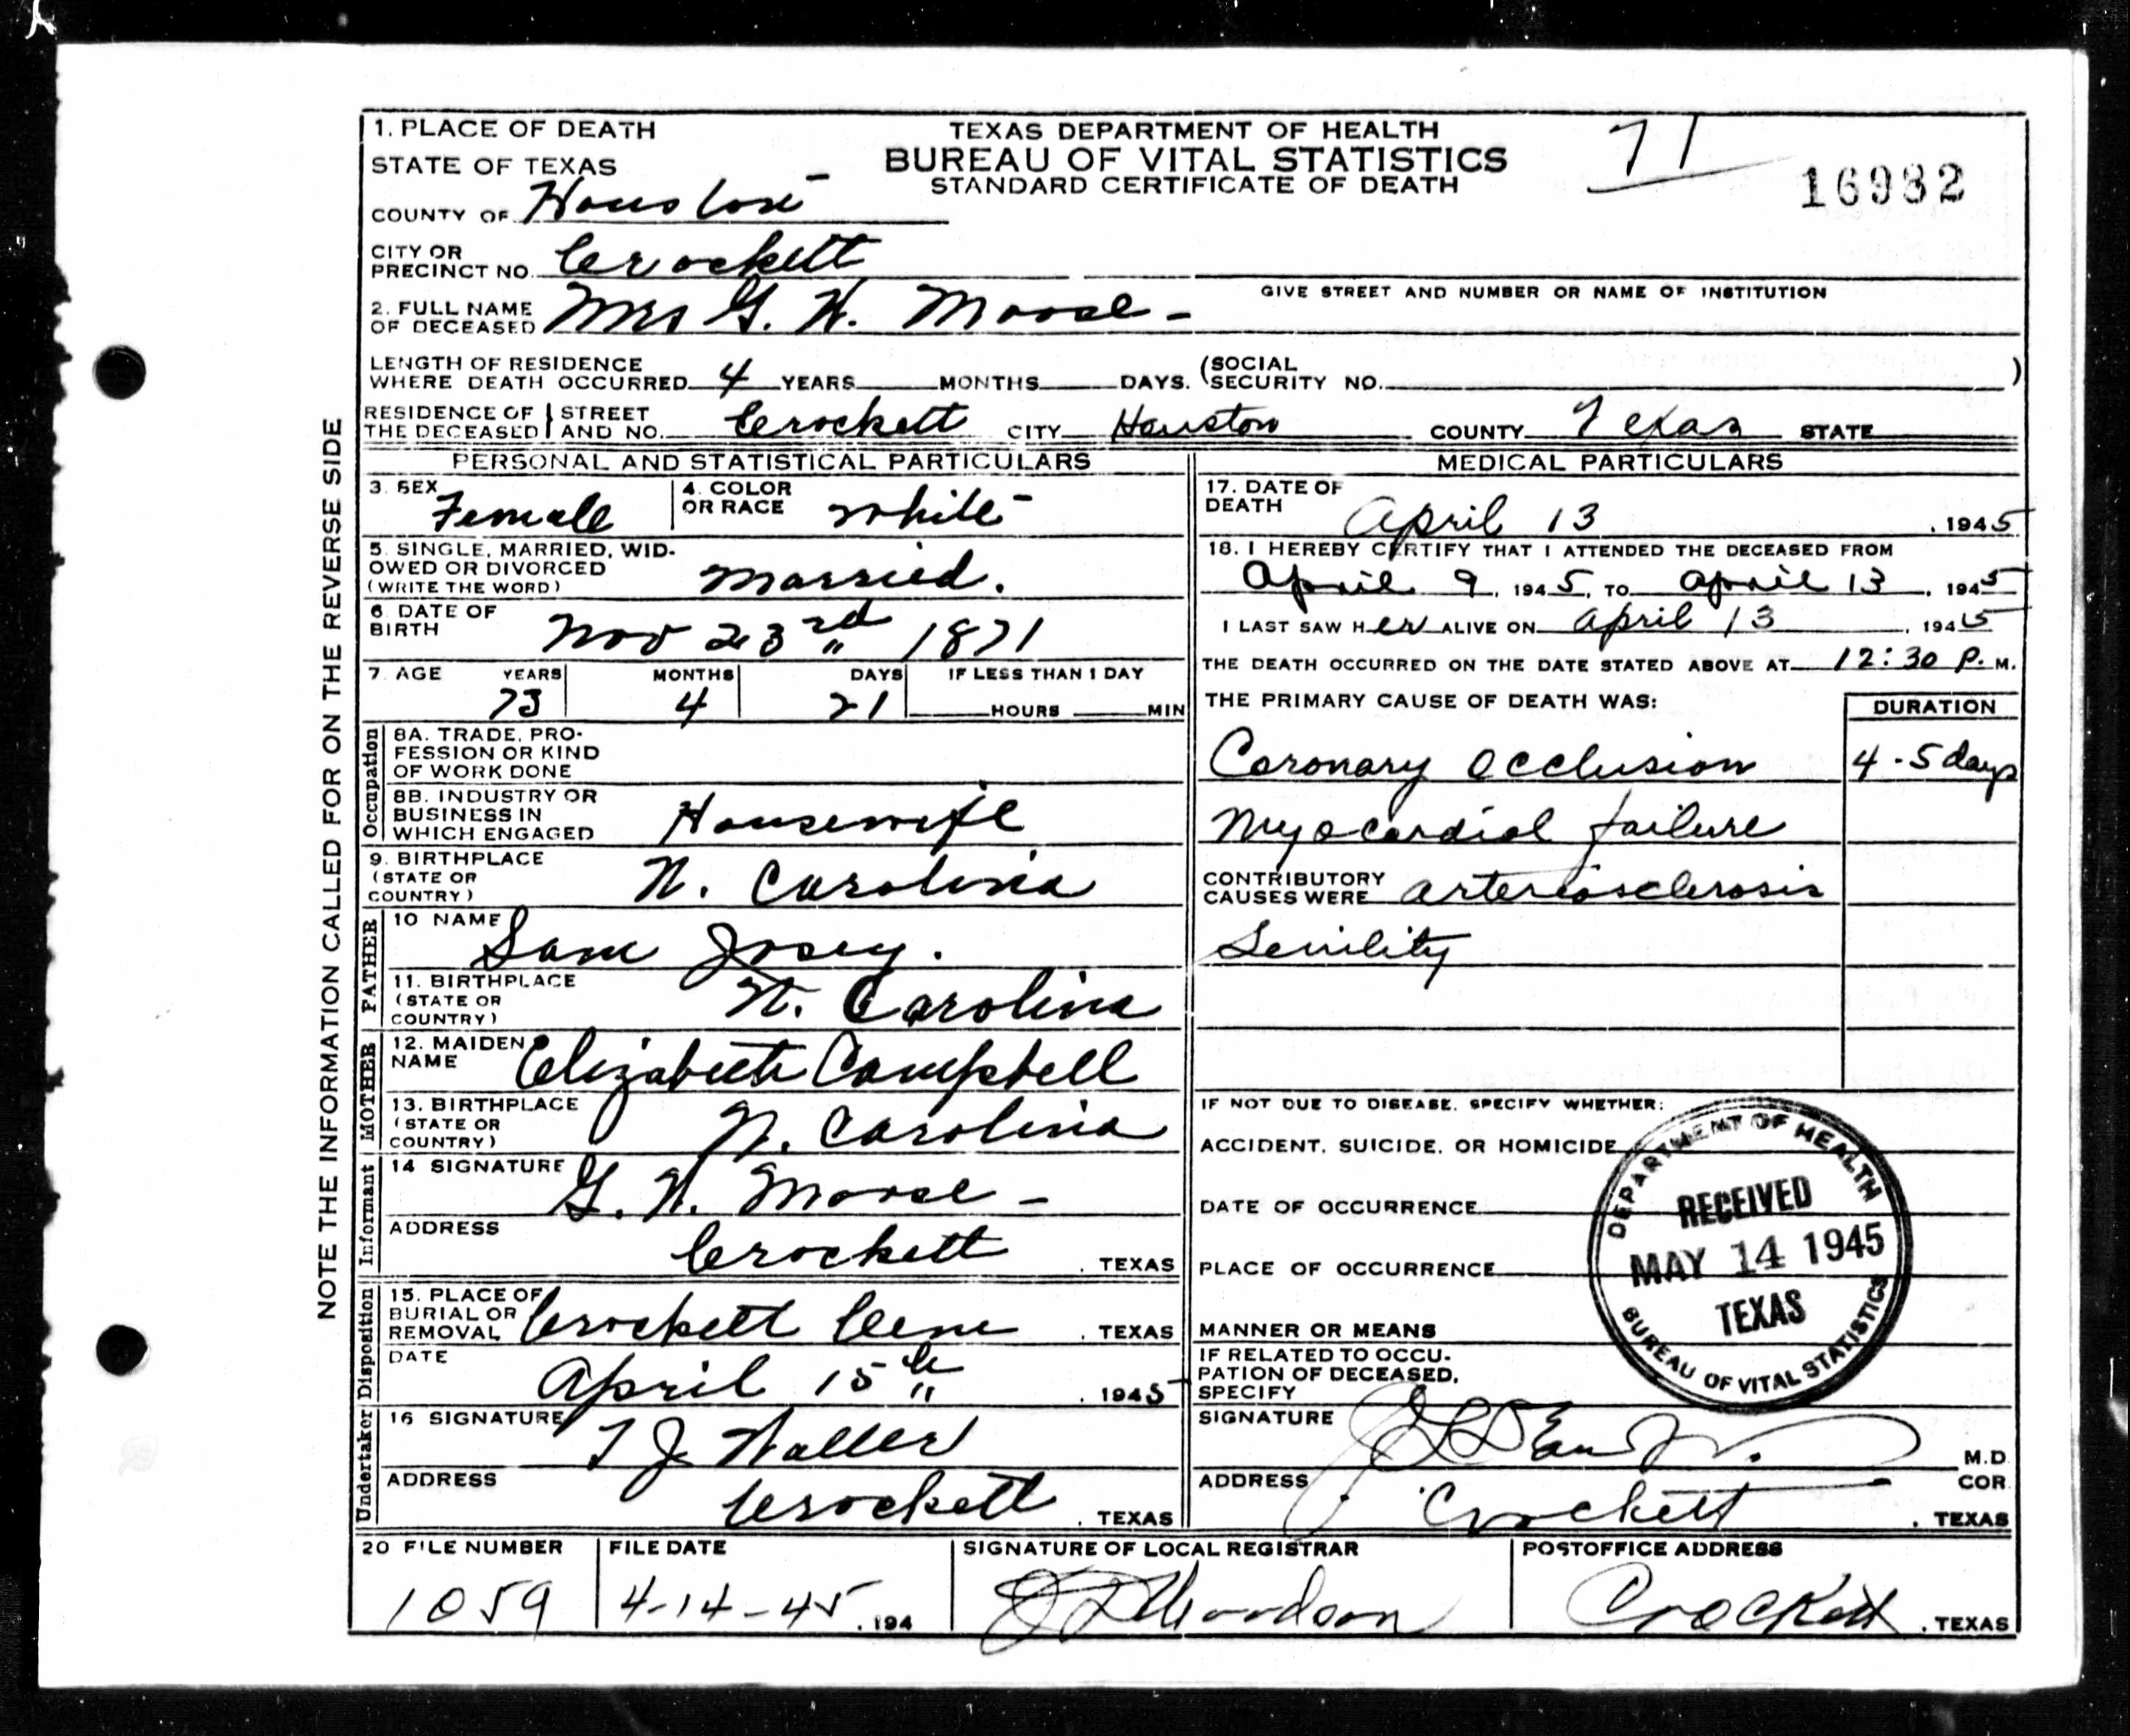 1. PLACE OF DEATH
STATE OF TEXAS
COUNTY OF Houston
CITY OR PRECINCT NO. Crockett
TEXAS DEPARTMENT OF HEALTH
BUREAU OF VITAL STATISTICS
STANDARD CERTIFICATE OF DEATH
71
16932
GIVE STREET AND NUMBER OR NAME OF INSTITUTION
2. FULL NAME OF DECEASED Mrs G. W. Moose -
LENGTH OF RESIDENCE
WHERE DEATH OCCURRED 4 YEARS MONTHS DAYS. (SOCIAL SECURITY NO. )
RESIDENCE OF THE DECEASED STREET AND NO. Crockett CITY Houston COUNTY Texas STATE
NOTE THE INFORMATION CALLED FOR ON THE REVERSE SIDE
PERSONAL AND STATISTICAL PARTICULARS
3. SEX Female
4. COLOR OR RACE White
5. SINGLE, MARRIED, WIDOWED OR DIVORCED (WRITE THE WORD) Married.
6. DATE OF BIRTH Nov 23rd 1871
7 AGE YEARS MONTHS DAYS IF LESS THAN 1 DAY
73 4 21 HOURS MIN
Occupation
8A. TRADE, PROFESSION OR KIND OF WORK DONE
8B. INDUSTRY OR BUSINESS IN WHICH ENGAGED Housewife
9. BIRTHPLACE (STATE OR COUNTRY) N. Carolina
FATHER
10 NAME Sam Josey.
11. BIRTHPLACE (STATE OR COUNTRY) N. Carolina
MOTHER
12. MAIDEN NAME Elizabeth Campbell
13. BIRTHPLACE (STATE OR COUNTRY) N. Carolina
Informant
14 SIGNATURE G. W. Moose -
ADDRESS Crockett, TEXAS
Disposition
15. PLACE OF BURIAL OR REMOVAL Crockett Cem, TEXAS
DATE April 15th, 1945
Undertaker
16 SIGNATURE T J Waller
ADDRESS Crockett, TEXAS
MEDICAL PARTICULARS
17. DATE OF DEATH April 13, 1945
18. I HEREBY CERTIFY THAT I ATTENDED THE DECEASED FROM
April 9, 1945, TO April 13, 1945
I LAST SAW Her ALIVE ON April 13, 1945
THE DEATH OCCURRED ON THE DATE STATED ABOVE AT 12:30 P. M.
THE PRIMARY CAUSE OF DEATH WAS: DURATION
Coronary Occlusion 4-5 days
Myocardial failure
CONTRIBUTORY CAUSES WERE arteriosclerosis
Senility
IF NOT DUE TO DISEASE, SPECIFY WHETHER:
ACCIDENT, SUICIDE, OR HOMICIDE
DATE OF OCCURRENCE
PLACE OF OCCURRENCE
MANNER OR MEANS
IF RELATED TO OCCUPATION OF DECEASED, SPECIFY
DEPARTMENT OF HEALTH
RECEIVED
MAY 14 1945
TEXAS
BUREAU OF VITAL STATISTICS
SIGNATURE Dean Jr. M.D.
COR
ADDRESS Crockett, TEXAS
20 FILE NUMBER 1059
FILE DATE 4-14-45, 194
SIGNATURE OF LOCAL REGISTRAR
POSTOFFICE ADDRESS Crockett, TEXAS